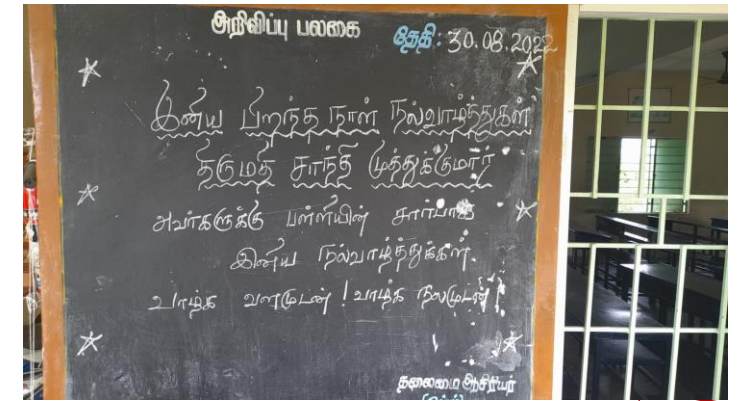 அறிவிப்பு பலகை
தேதி: 30.08.2022
இனிய பிறந்த நாள் நல்வாழ்த்துகள்
திருமதி சாந்தி முத்துக்குமார்
அவர்களுக்கு பள்ளியின் சார்பாக
இனிய நல்வாழ்த்துக்கள்.
வாழ்க வளமுடன் ! வாழ்க நலமுடன் !
தலைமை ஆசிரியர்